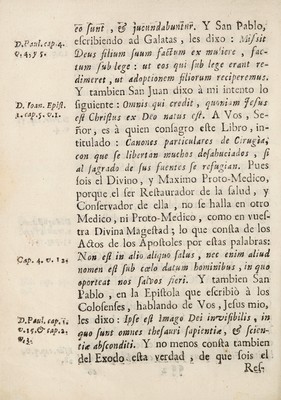 eo sunt, & jucundabuntur. Y San Pablo,
D. Paul. cap. 4.
v. 4, y 5.
escribiendo ad Galatas, les dixo: Missit
Deus filium suum factum ex muliere, fac-
tum sub lege: ut eos qui sub lege erant re-
dimeret, ut adoptionem filiorum reciperemus.
Y tambien San Juan dixo à mi intento lo
D. Ioan. Epist.
1. cap. 5. v. 1.
siguiente: Omnis qui credit, quoniam Jesus
est Christus ex Deo natus est. A Vos, Se-
ñor, es à quien consagro este Libro, in-
titulado: Canones particulares de Cirugia;
con que se libertan muchos desahuciados, si
al sagrado de sus fuentes se refugian. Pues
sois el Divino, y Maximo Proto-Medico,
porque el ser Restaurador de la salud, y
Conservador de ella, no se halla en otro
Medico, ni Proto-Medico, como en vues-
tra Divina Magestad; lo que consta de los
Actos de los Apostoles por estas palabras:
Cap. 4. v. 12.
Non est in alio aliquo salus, nec enim aliud
nomen est sub cœlo datum hominibus, in quo
oporteat nos salvos fieri. Y tambien San
Pablo, en la Epistola que escribiò à los
Colosenses, hablando de Vos, Jesus mio,
D. Paul, cap. 1.
v. 15, & cap. 2.
v. 3.
les dixo: Ipse est Imago Dei invisibilis, in
quo sunt omnes thesauri sapientiæ, & scien-
tiæ absconditi. Y no menos consta tambien
del Exodo esta verdad, de que sois el
Res-